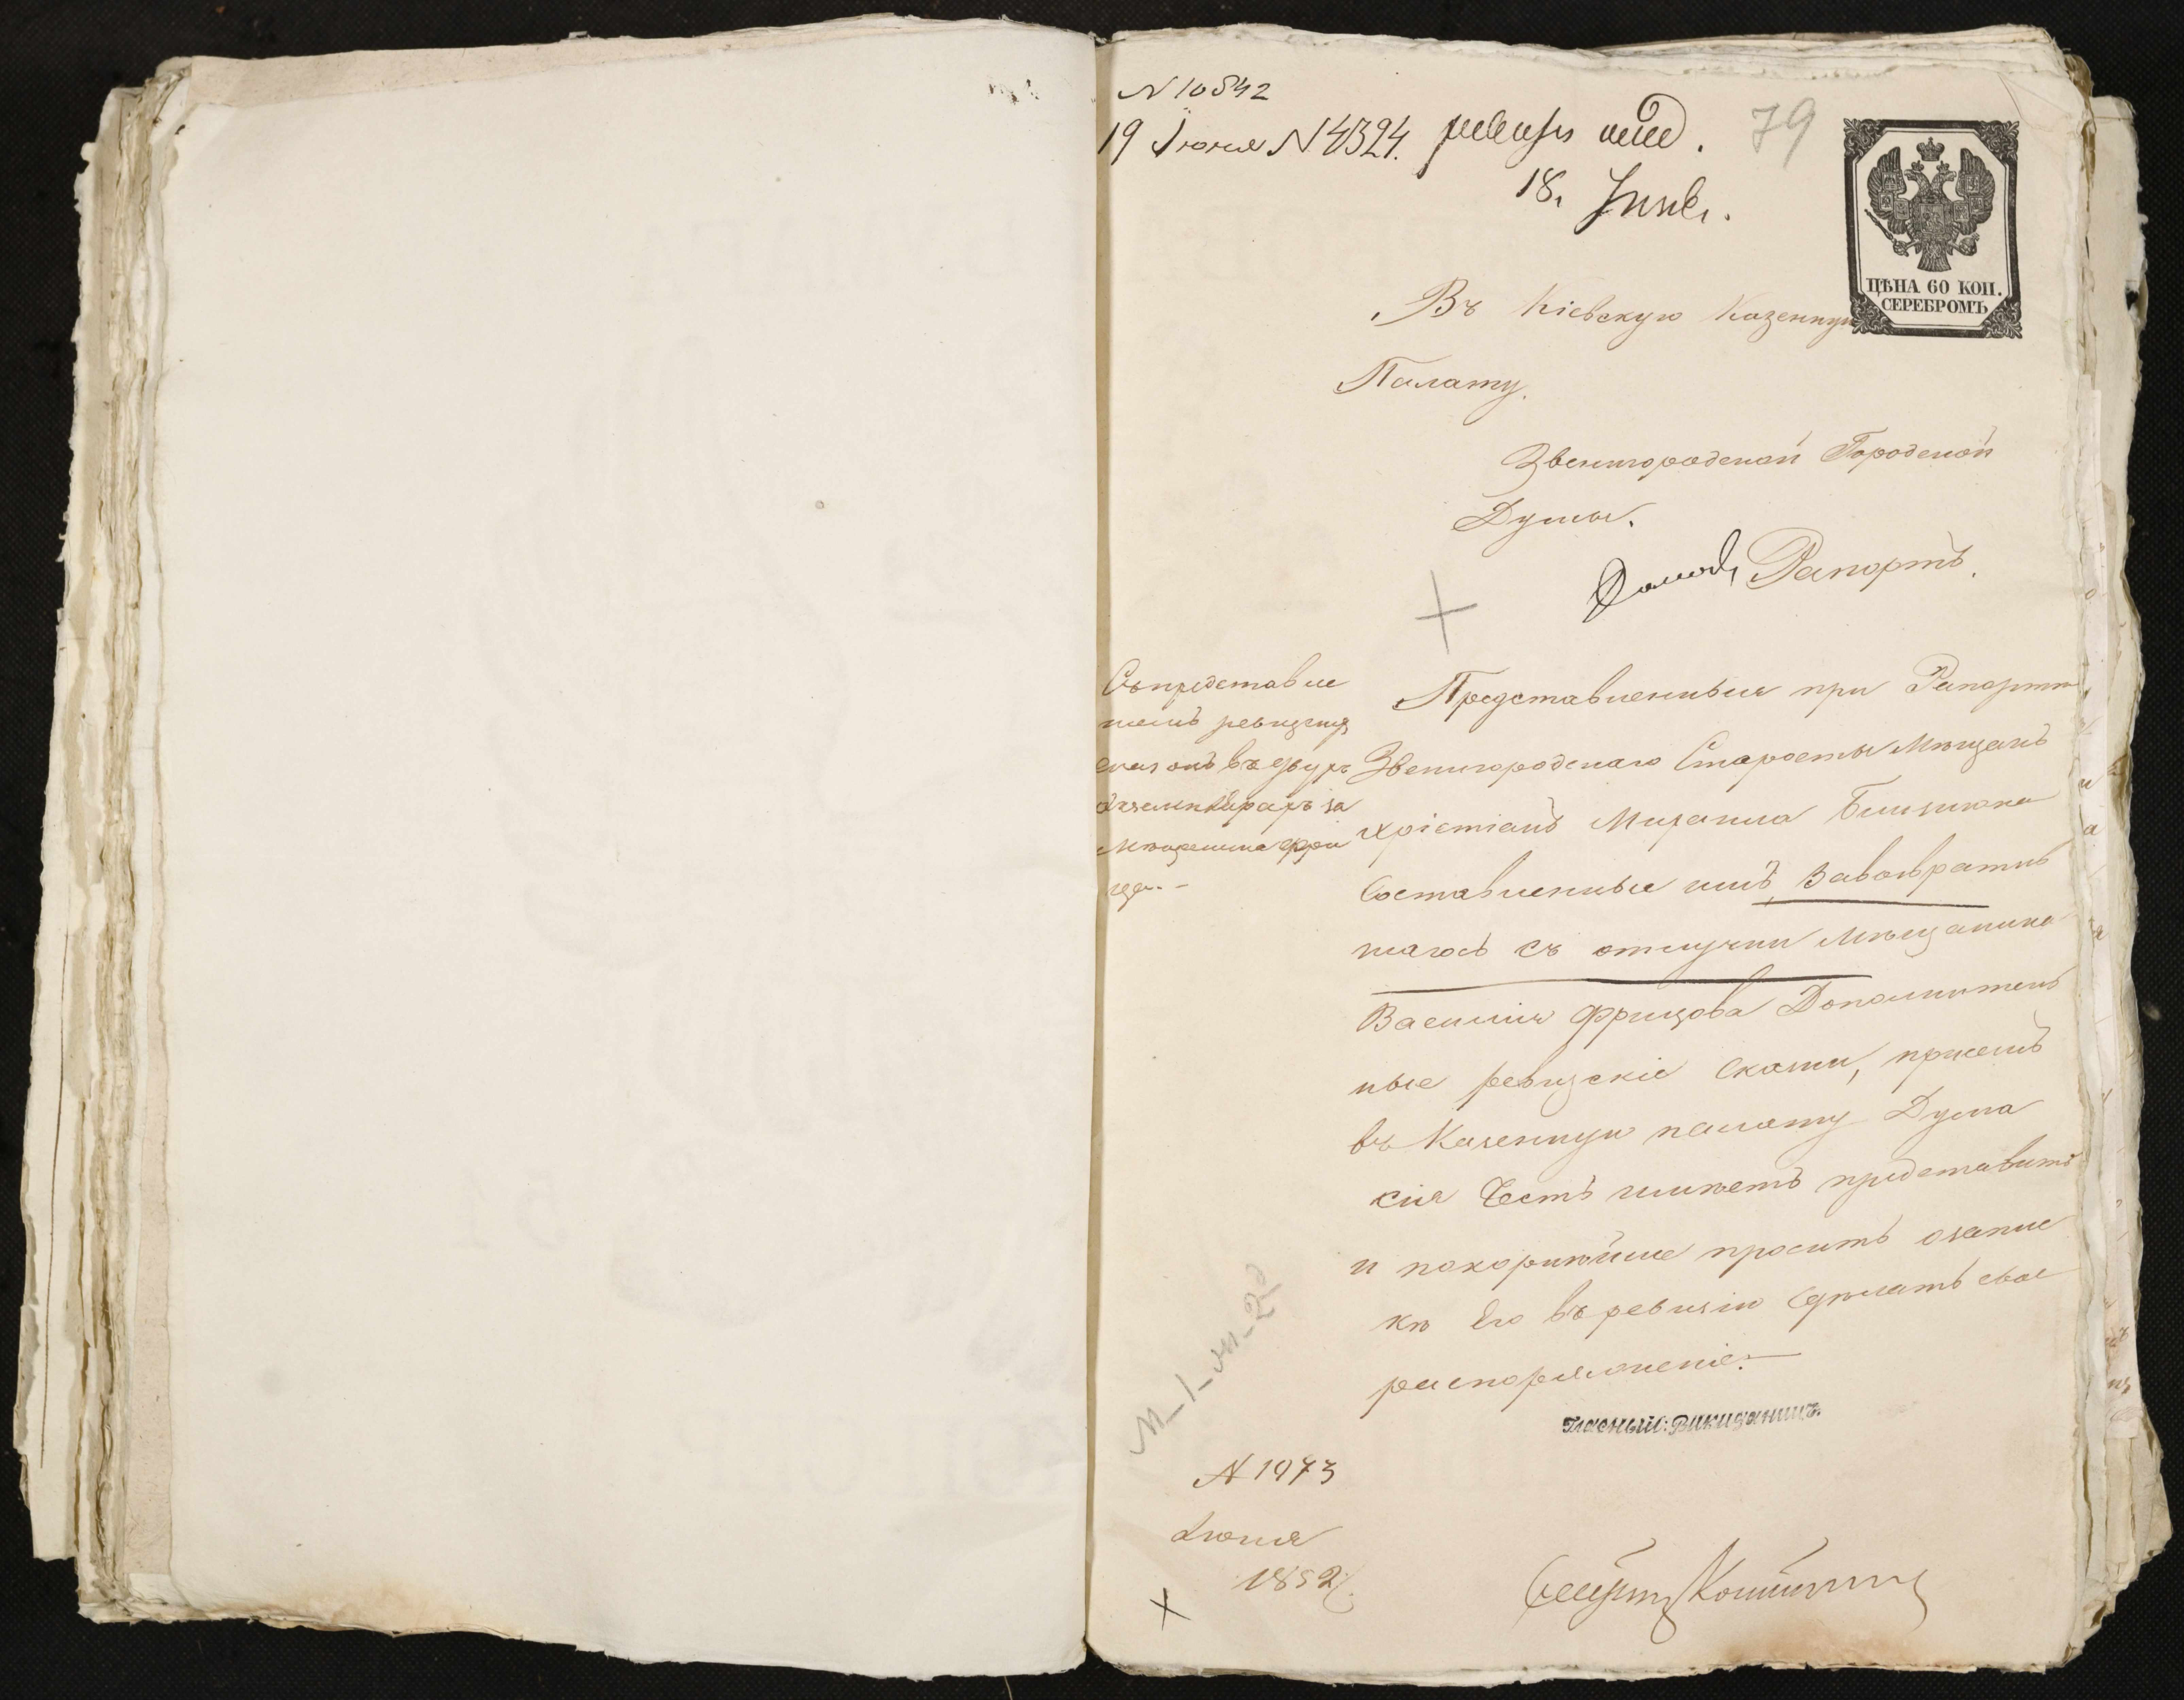 N 10542
19 Июня N 4324.
79
18. Июня.
ЦѢНА 60 КОП.
СЕРЕБРОМЪ
Въ Кіевскую Казенную
Палату.
Звенигородской Городской
Думы.
Рапортъ.
Съ представле
ніемъ ревизскихъ
сказокъ въ двухъ
экземплярахъ за
мѣщанина Фри
цова.-
Представленныя при Рапортѣ
Звенигородскаго Старосты Мѣщанъ
христіанъ Михаила
Составленные имъ, за возврати
шагось съ отлучки мѣщанина
Василія Фрицова Дополнитель
ные ревизскіе Скаски, при семъ
въ Казенную палату Дума
сія Честь имѣетъ представить
и покорнѣйше проситъ о запис
кѣ Его въ ревизію Сдѣлать свое
распоряженіе.-
Гласный:
N 1973
Июня
1852 г.